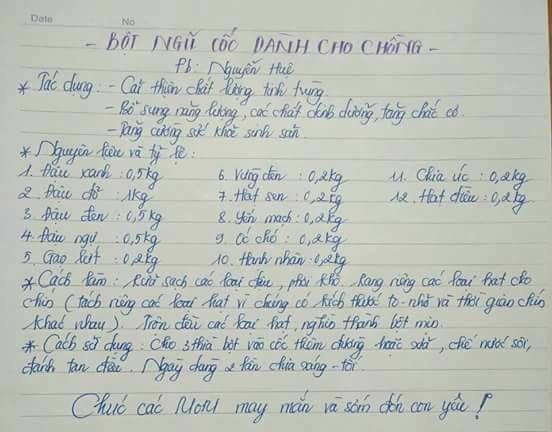 Date No
- BỘT NGŨ CỐC DÀNH CHO CHỒNG -
Pb: Nguyễn Huê
* Tác dụng: - Cải thiện chất lượng tinh trùng.
- Bổ sung năng lượng, các chất dinh dưỡng, tăng chắc cơ.
- Tăng cường sức khỏe sinh sản.
* Nguyên liệu và tỷ lệ:
1. Đậu xanh: 0,5kg 6. Vừng đen: 0,2kg 11. Chia úc: 0,2kg
2. Đậu đỏ: 1kg 7. Hạt sen: 0,2kg 12. Hạt điều: 0,2kg
3. Đậu đen: 0,5kg 8. Yến mạch: 0,2kg
4. Đậu ngự: 0,5kg 9. Óc chó: 0,2kg
5. Gạo lứt: 0,2kg 10. Hạnh nhân: 0,2kg
* Cách làm: Rửa sạch các loại đậu, phơi khô. Rang riêng các loại hạt cho
chín (tách riêng các loại hạt vì chúng có kích thước to-nhỏ và thời gian chín
khác nhau). Trộn đều các loại hạt, nghiền thành bột mịn.
* Cách sử dụng: Cho 3 thìa bột vào cốc thêm đường hoặc sữa, chế nước sôi,
đánh tan đều. Ngày dùng 2 lần chia sáng - tối.
Chúc các MOM may mắn và sớm đón con yêu!